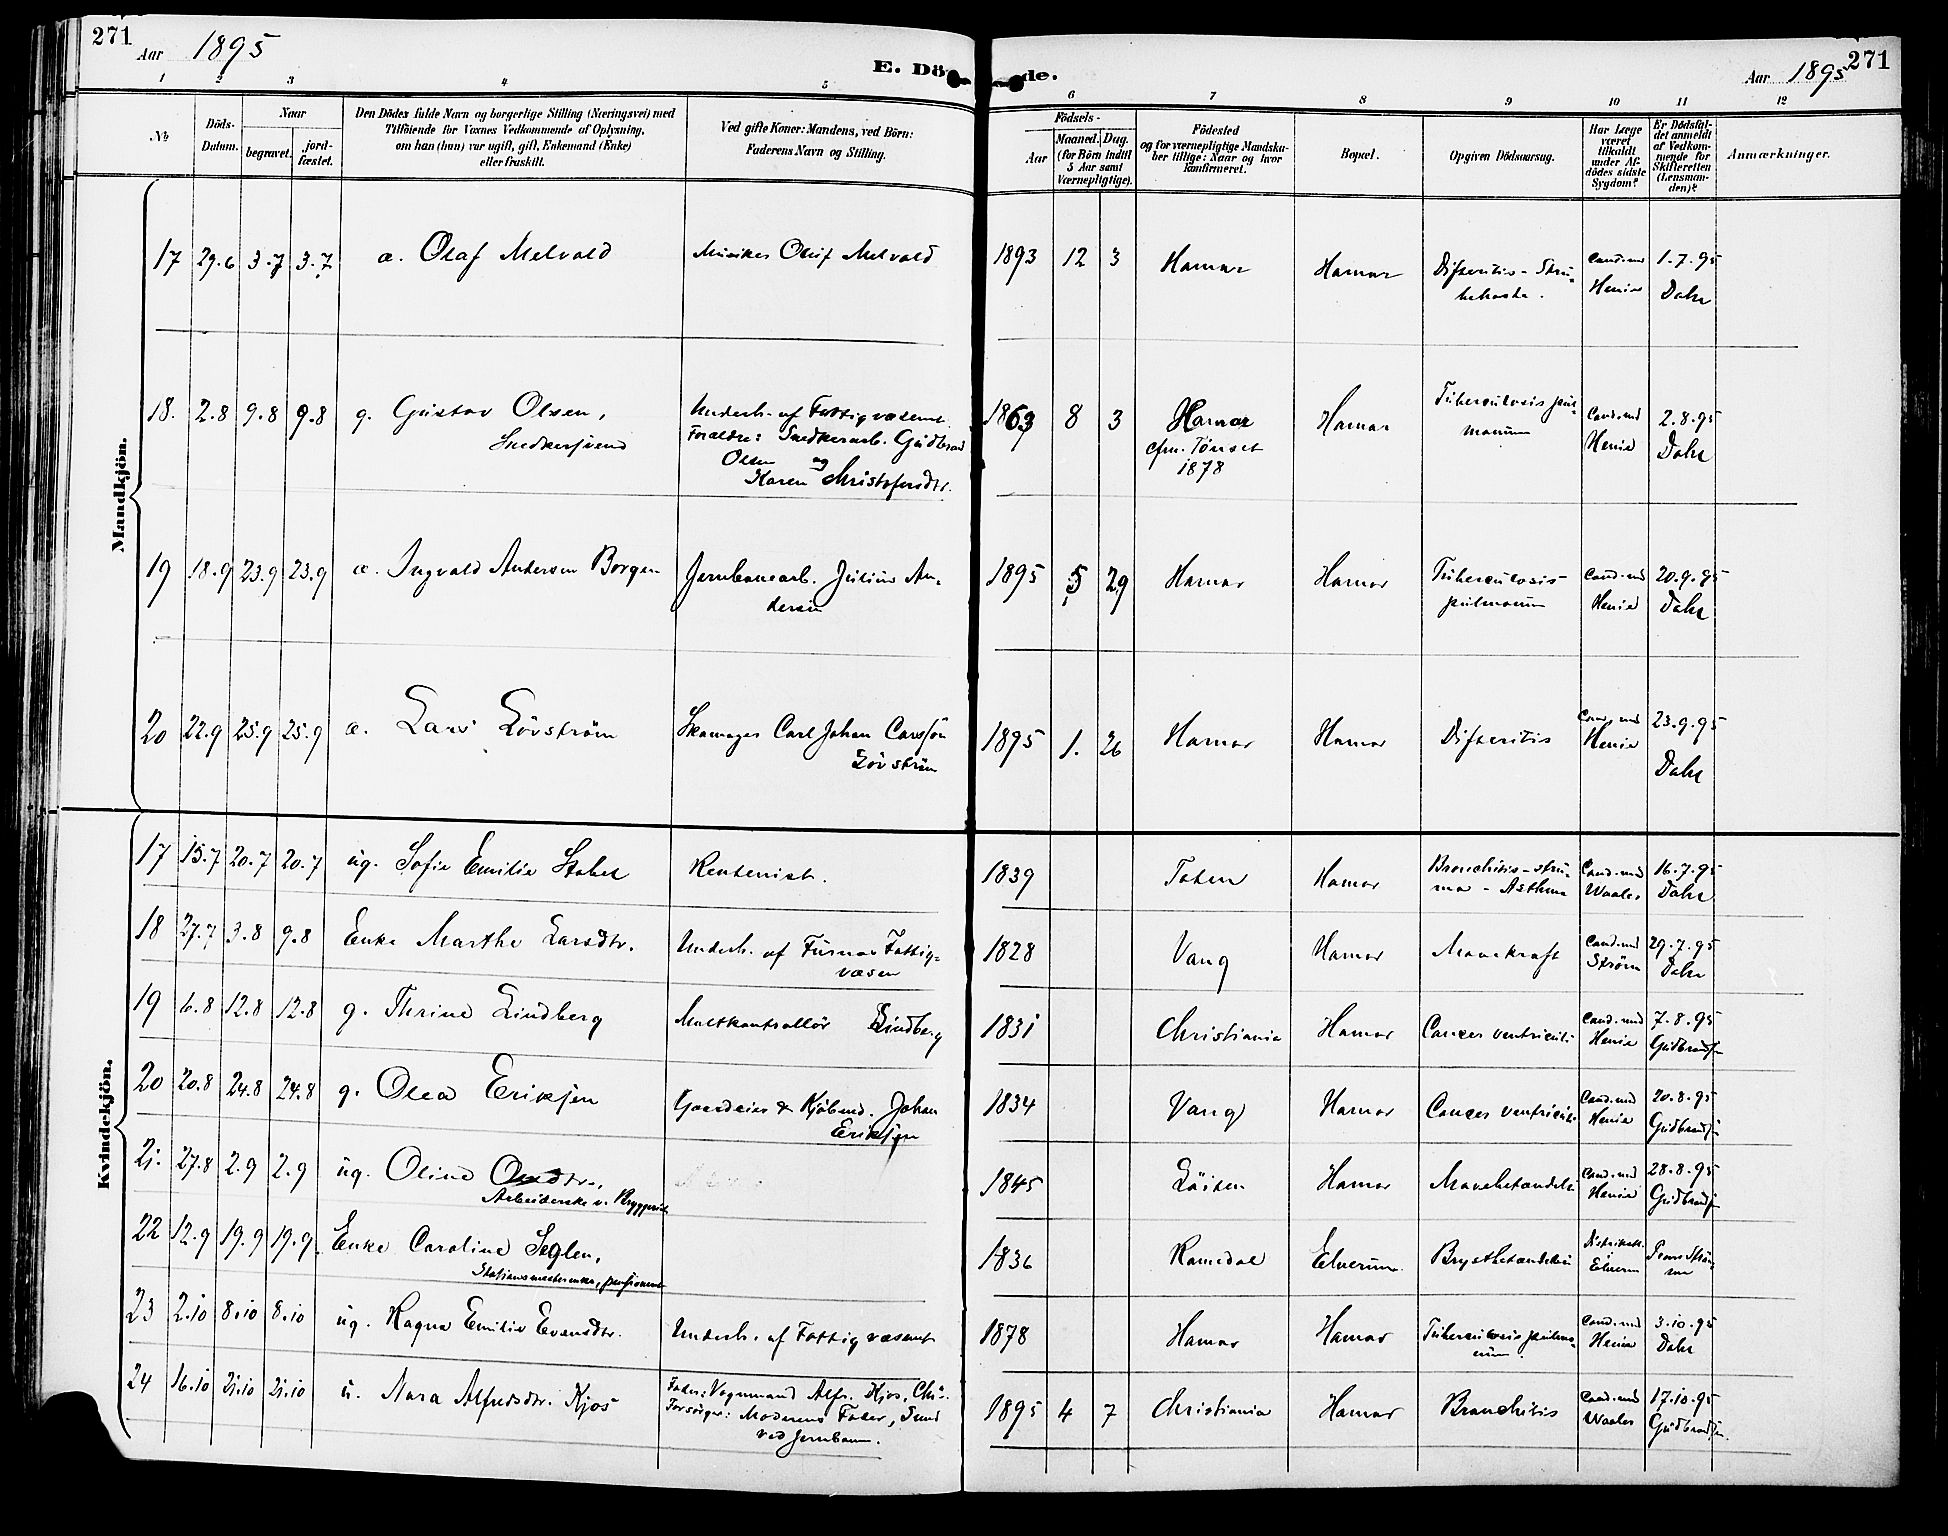 271
Aar 1895
E. Dö de.
Aar 1895
271
1 2 3 4 5 6 7 8 9 10 11 12
No
Döds-
Datum.
Naar
begravet.
jord-
fæstet.
Den Dödes fulde Navn og borgerlige Stilling (Næringsvei) med
Tilföiende for Voxnes Vedkommende af Oplysning,
om han (hun) var ugift, gift, Enkemand (Enke)
eller fraskilt.
Ved gifte Koner: Mandens, ved Börn:
Faderens Navn og Stilling.
Födsels-
Aar
Maaned. Dag.
(for Börn indtil
5 Aar samt
Værnepligtige).
Födested
og for værnepligtige Mandska-
ber tillige: Naar og hvor
konfirmeret.
Bopæl.
Opgiven Dödsaarsag.
Har Læge
været
tilkaldt
under Af-
dödes sidste
Sygdom?
Er Dödsfal-
det anmeldt
af Vedkom-
mende for
Skifteretten
(Lensman-
den)?
Anmærkninger.
Mandkjön.
17 29.6 3.7 3.7 æ. Olaf Melvold Musiker Oluf Melvold 1893 12 3 Hamar Hamar Difteritis - Stru-
behoste. Cand. med Henie 1.7.95 Dahl
18. 2.8 9.8 9.8 g. Gustav Olsen,
Snedkersvend
Underh. af Fattigvæsenet
Forældre: Snedkerarb. Gudbrand
Olsen og
Karen Christofersdtr.
1863 8 3 Hamar
cfm. Tönset
1878
Hamar Tuberculosis pul-
monum Cand. med Henie 2.8.95 Dahl
19 18.9 23.9 23.9 æ. Ingvald Andersen Borgen Jernbanearb. Julius An-
dersen 1895 5 29 Hamar Hamar Tuberculosis
pulmonum Cand. med Henie 20.9.95 Dahl
20 22.9 25.9 25.9 æ. Lars Lövström Skomager Carl Johan Carlsson
Lövström 1895 1. 26 Hamar Hamar Difteritis Cand. med Henie 23.9.95 Dahl
Kvindekjön.
17 15.7 20.7 20.7 ug. Sofie Emilie Stabel Rentenist. 1839 Toten Hamar Bronchitis - stru-
ma - Asthma Cand. med Waaler 16.7.95 Dahl
18 27.7 3.8 9.8 Enke Marthe Larsdtr. Underh. af Furnes Fattig-
væsen 1828 Vang Hamar Mavekræft Cand. med Ström 29.7.95 Dahl
19 6.8 12.8 12.8 g. Thrine Lindberg Maltkontrollör Lindberg 1831 Christiania Hamar Cancer ventriculi Cand. med Henie 7.8.95 Gudbrandsen
20 20.8 24.8 24.8 g. Olea Eriksen Gaardeier & Kjöbmd. Johan
Eriksen 1834 Vang Hamar Cancer ventriculi Cand. med Henie 20.8.95 Gudbrandsen
21. 27.8 2.9 2.9 ug. Oline
Arbeiderske v. Bryggeriet
1845 Löiten Hamar Mavebetændelse Cand. med Henie 28.8.95 Gudbrandsen
22 12.9 19.9 19.9 Enke Caroline Seglen,
Stationsmesterenke, pensioneret
1836 Romedal Elverum. Brystbetændelse Distriktsl. i Elverum
23 2.10 8.10 8.10 ug. Ragna Emilie Evensdtr. Underh. af Fattigvæsenet 1878 Hamar Hamar Tuberculosis pulmo-
num. Cand. med Henie 3.10.95 Dahl
24 16.10 21.10 21.10 u. Nora Alfredsdtr. Kjos Fader: Vognmand Alfr. Kjos, Chr.
Forsörger: Moderens Fader, Smed
ved Jernbanen. 1895 4 7 Christiania Hamar Bronchitis Cand. med Waaler 17.10.95 Gudbrandsen.